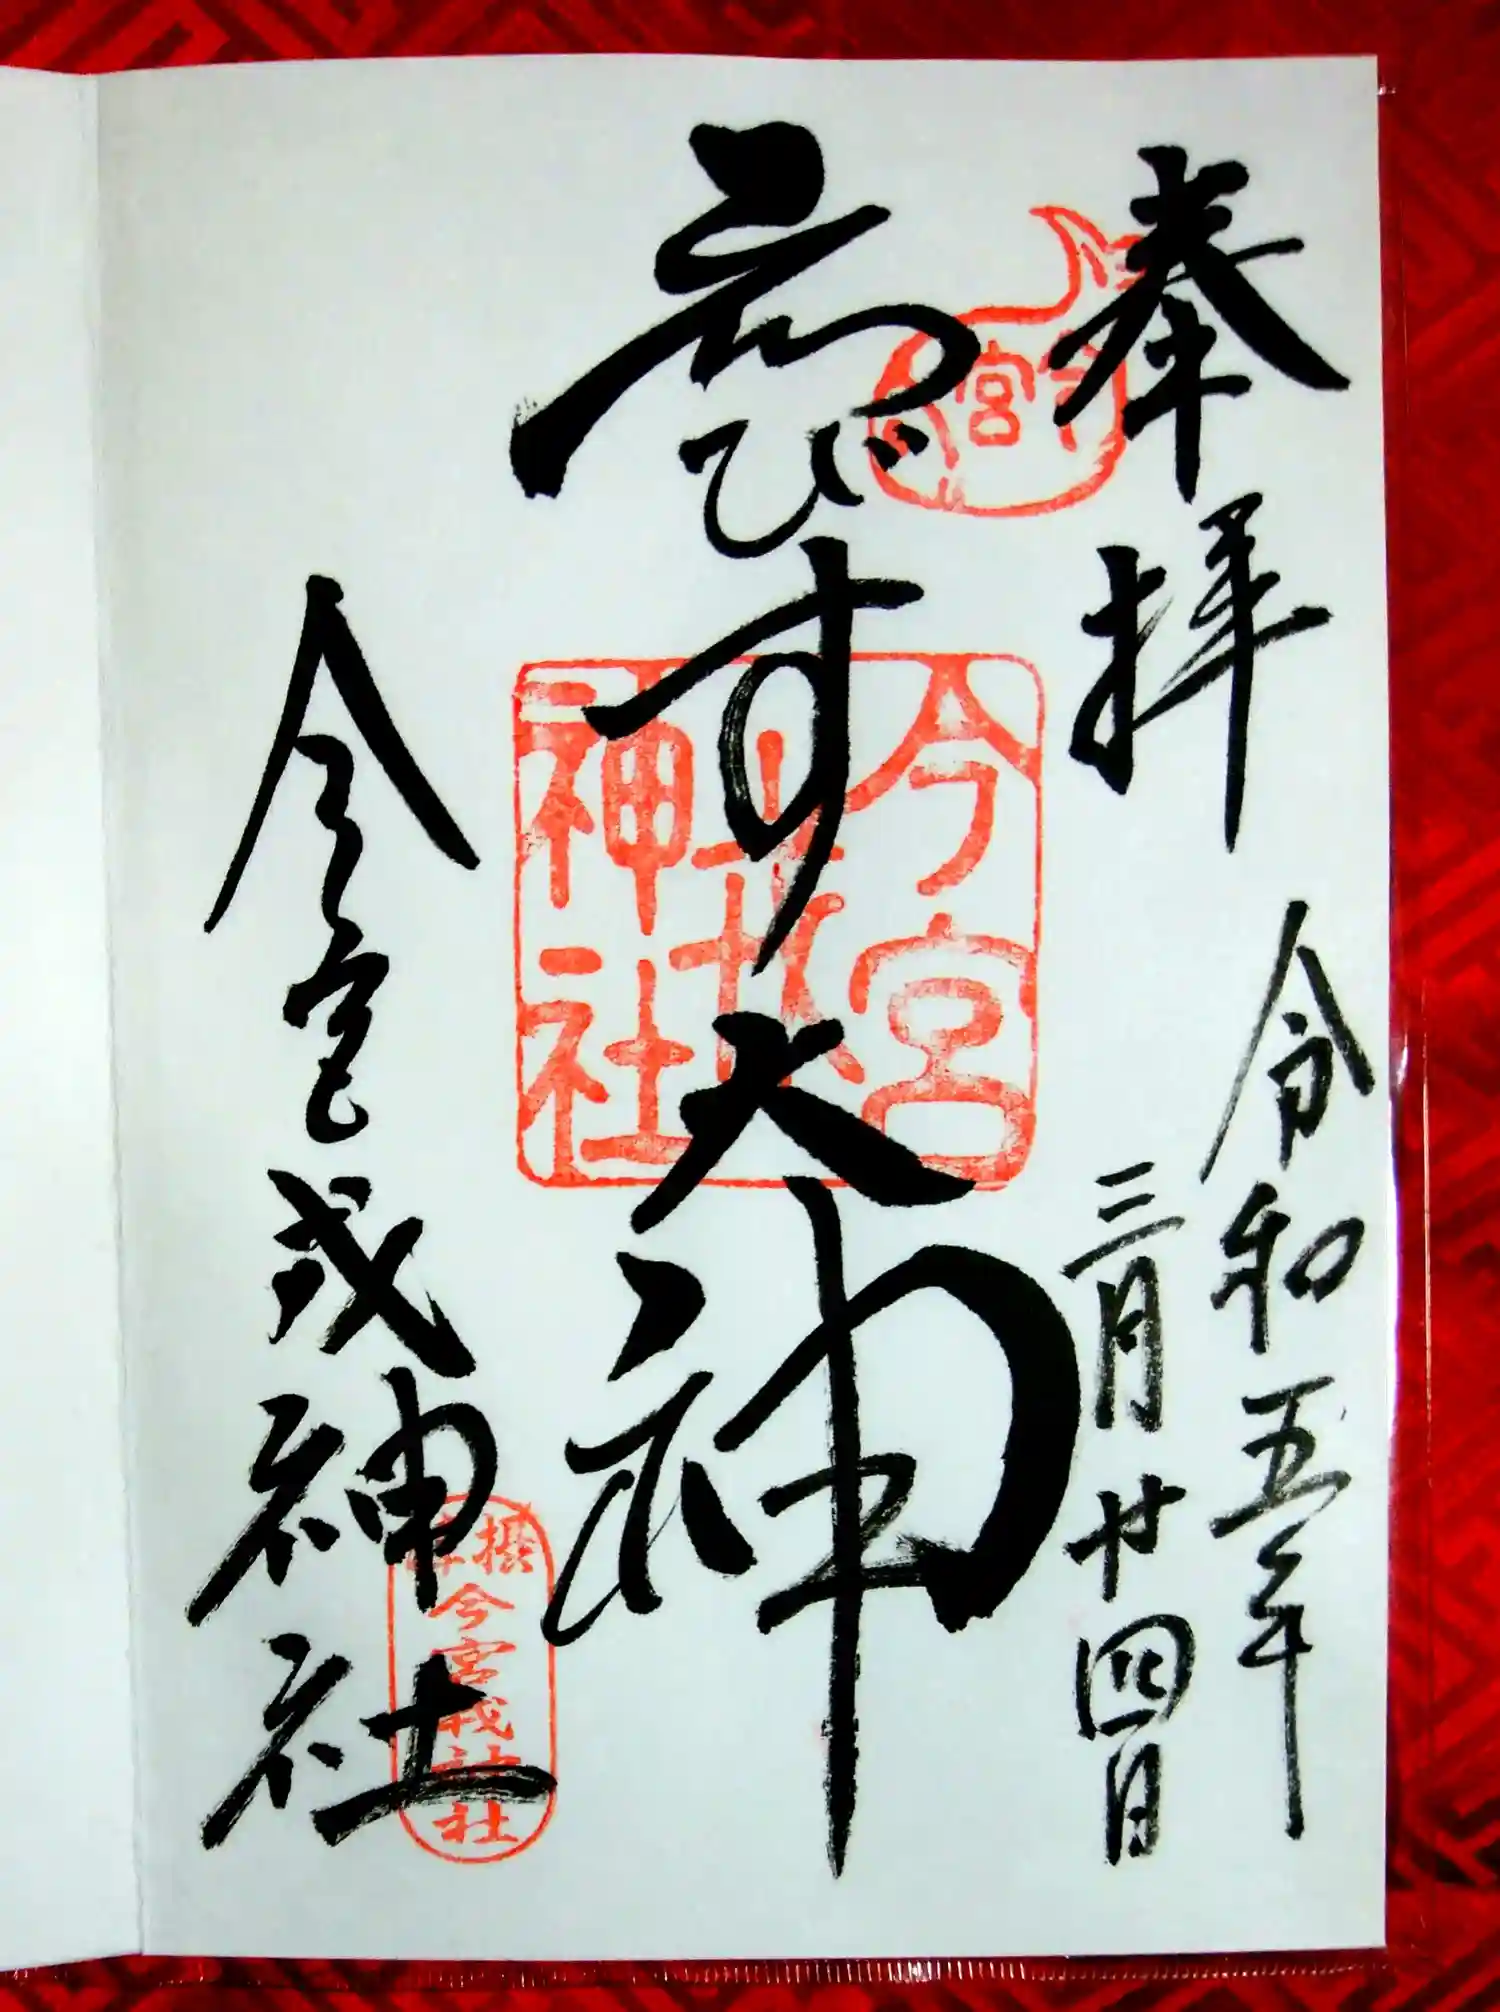 奉拝
令和五年
三月廿四日
ゑびす大神
今宮戎神社
今宮
今宮
戎
神社
今宮戎神社